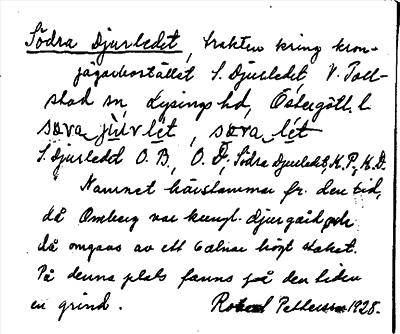 Södra Djurledet, trakten kring kron-
jägarbostället S. Djurledet, V. Toll-
stad sn Lysings hd, Östergötl. l.
söra jùvlét, söra lét
S. Djurledet O. B., O. F., Södra Djurledet, K. P., K. D.
Namnet härstammar fr. den tid,
då Omberg var kungl. djurgård och
då omgavs av ett 6 alnar högt staket.
På denna plats fanns på den tiden
en grind. Robert Pettersson 1928.